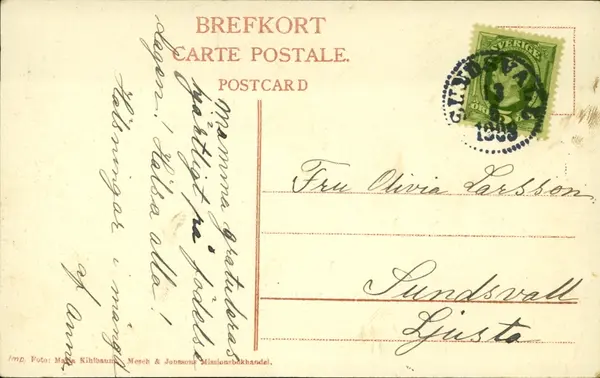 BREFKORT
CARTE POSTALE.
POSTCARD
SVERIGE
SUNDSVALL
Mamma gratuleras
hjärtligt på födelse
dagen! Hälsa alla!
Hälsningar i mängd
af Anna
Fru Olivia Larsson
Sundsvall
Ljusta
Imp. Foto: Maria Kihlbaum, & Jonsons Missionsbokhandel.